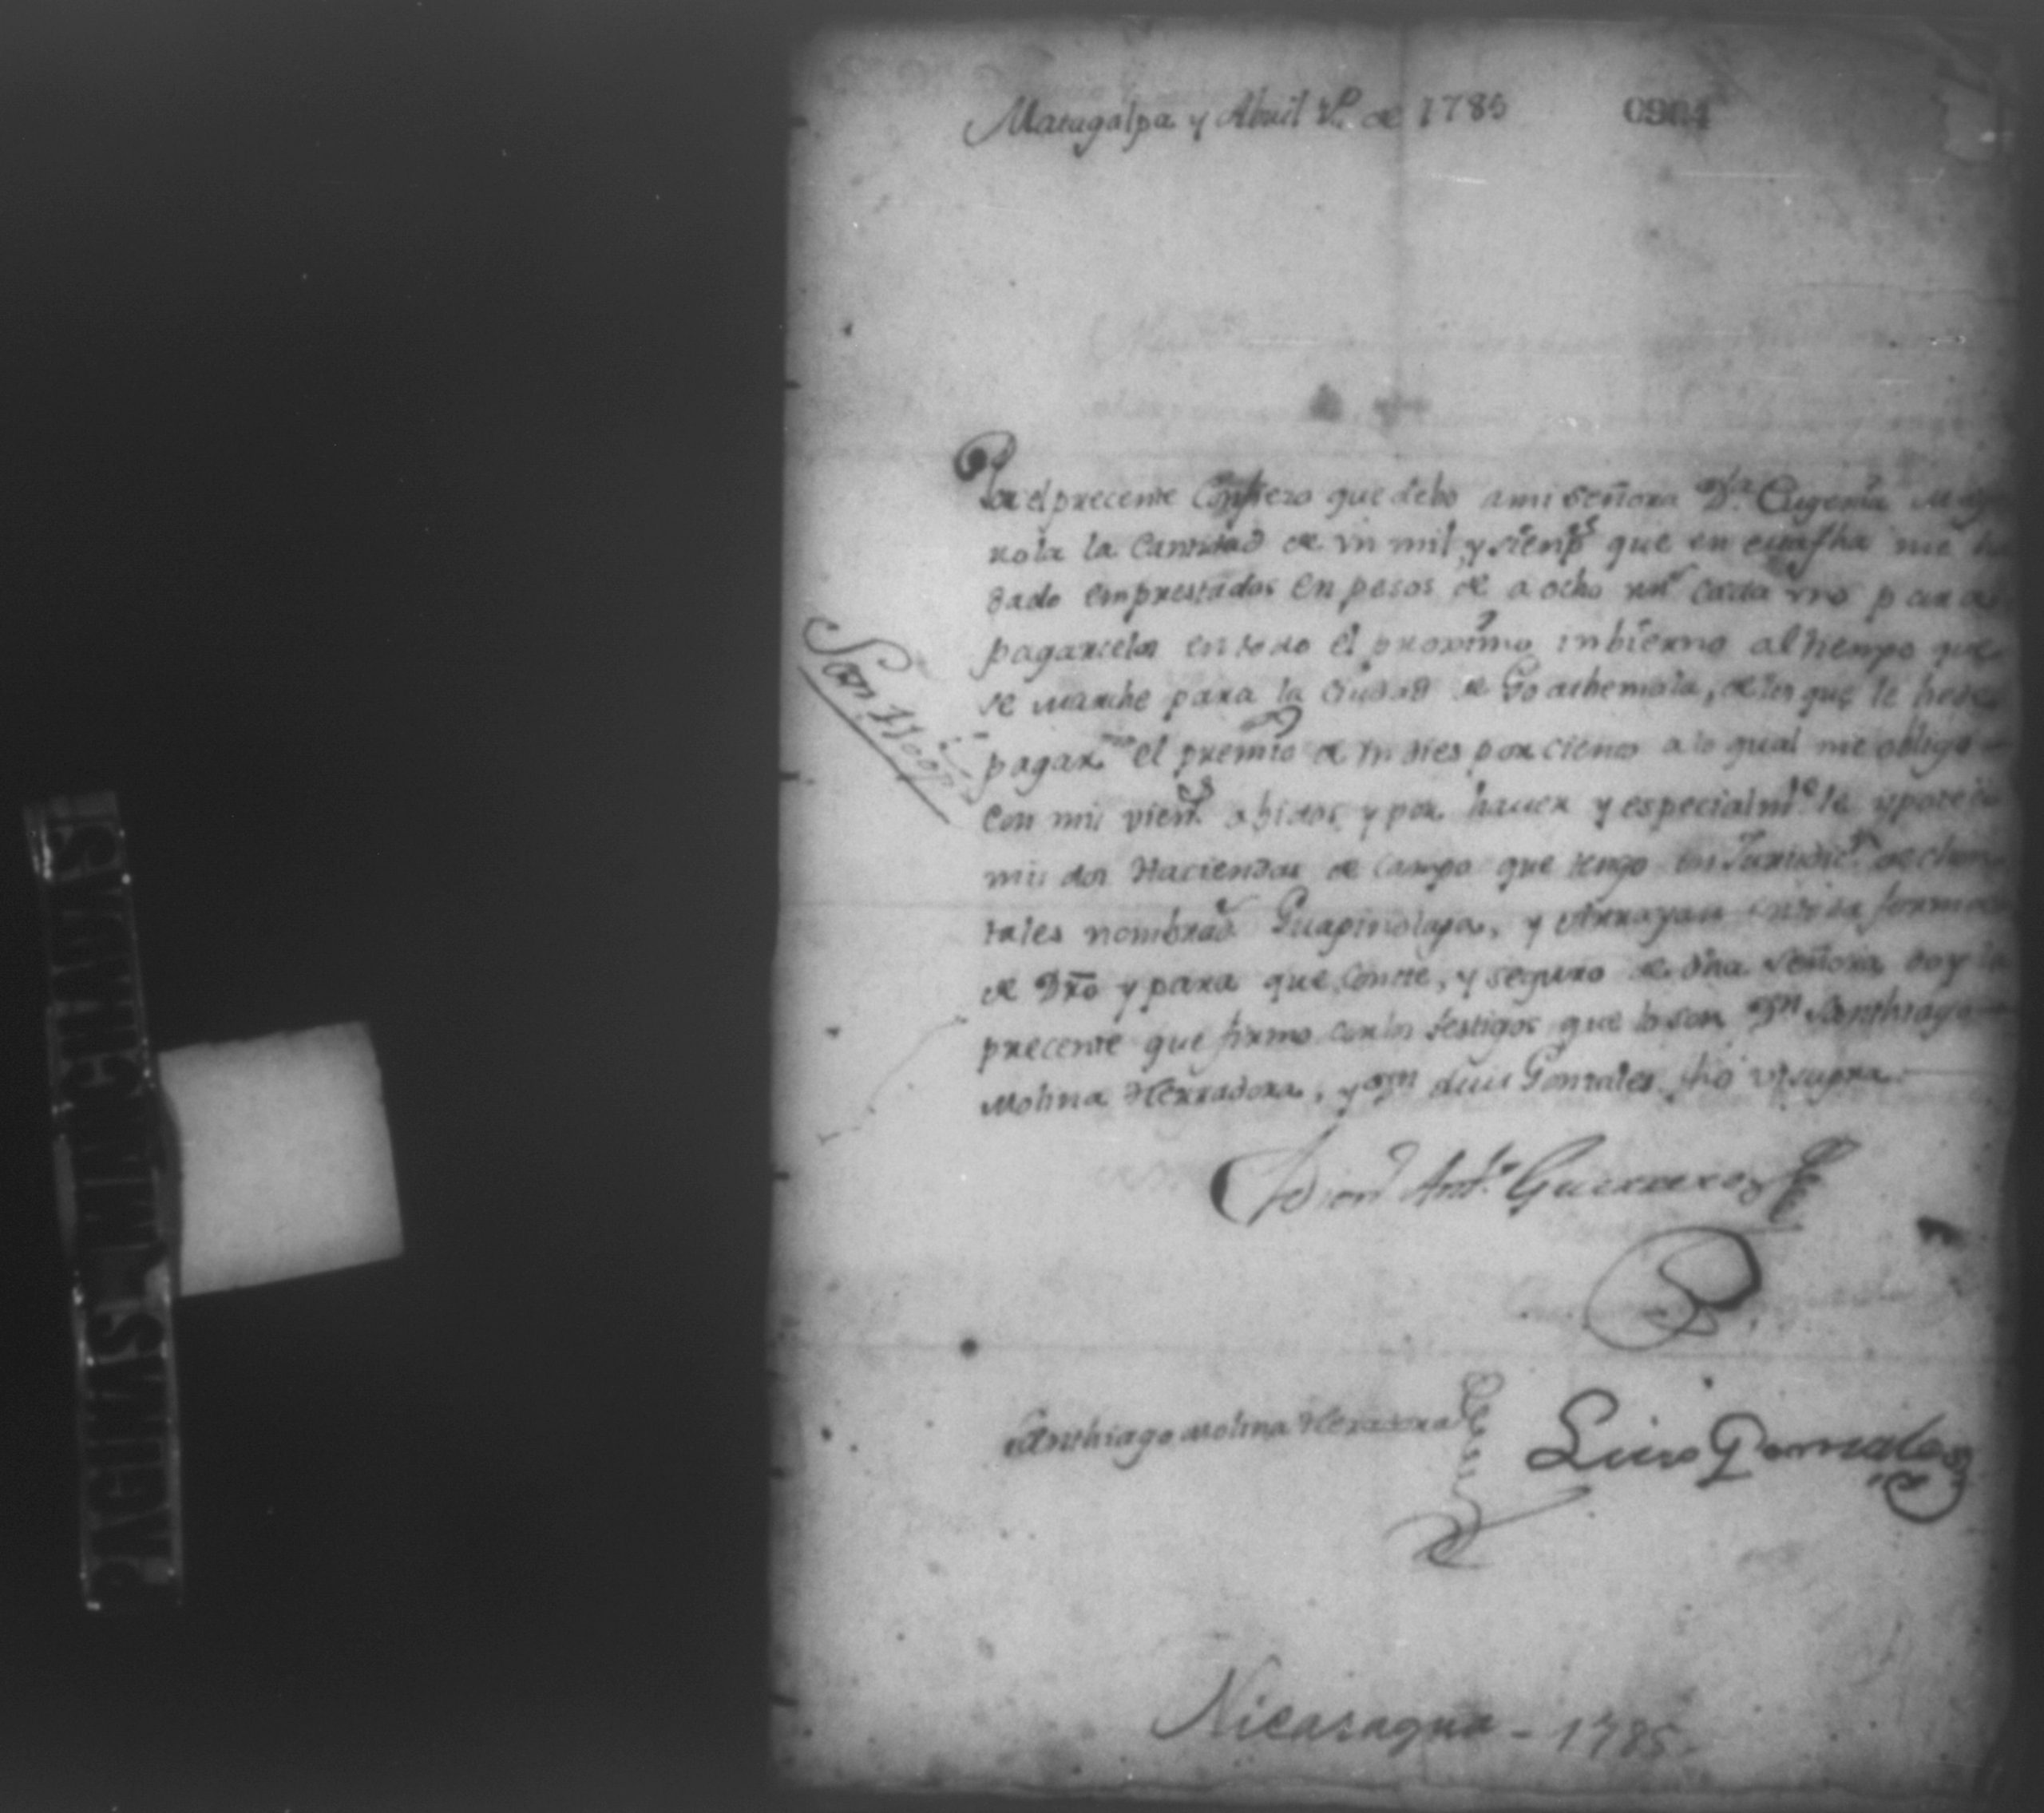 Matagalpa y Abril 1º. de 1785
0904
Por el precente Confiezo que debo a mi señora Dª. Eugenia
rola la Cantidad de vn mil, y sien pˢ que en esta fha me ha
dado emprestados en pesos de a ocho rrˢ cada vno para
pagarcelos en todo el proximo inbierno al tiempo que
se marche para la Ciudad de Goathemala, de los que le he de
pagar el premio de vn dies por ciento a lo qual me obligo
con mis vienˢ abidos y por hauer y especialmᵉ le ypoteco
mis dos Haciendas de campo que tengo en Jurisdicⁿ de chon
tales nombradˢ Guapinolapa, y Arrayan en toda forma
de Dro y para que conste, y seguro de dha señora doy la
precente que firmo con los testigos que lo son Dⁿ Santhiago
Molina Herradora, y Dⁿ Luis Gonzales fho vt supra.
Son 1100 pˢ
Dionˢ Antº. Guerrero
Santhiago Molina Herradora
Luis Gonzales
Nicaragua - 1785.
PAGINAS MANCHADAS